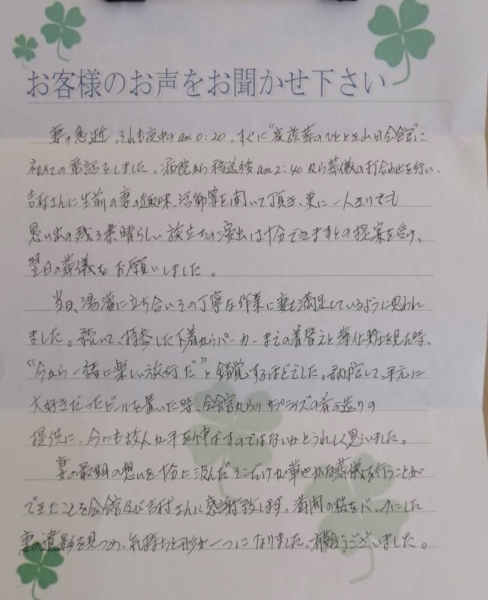 お客様のお声をお聞かせ下さい
妻の急逝、それも夜中のam0:20。すぐに"家族葬のひととき 会館"に
初めての電話をしました。病院から移送後am2:40から葬儀の打合わせを行い、
吉村さんに生前の妻の趣味、活動等を聞いて頂き、更に一人きりでも
思い出の残る素晴らしい旅立ちの演出は十分できますとの提案を受け、
翌日の葬儀をお願いしました。
当日、湯灌に立ち合いその丁寧な作業に妻も満足しているように思われ
ました。続いて、持参した下着からパーカーまでの着替えと薄化粧を見た時、
"今から一緒に楽しい旅行だ"と錯覚するほどでした。納棺して、手元に
大好きだったビールを置いた時、会館からのサプライズの肴の造りの
提供に、今にも故人が手を伸ばすのではないかとうれしく思いました。
妻の最期の想いを十分に汲んだ華やかな葬儀を行うことが
できたことを会館及び吉村さんに感謝致します。満開の桜をバックにした
妻の遺影を見つめ、気持ちと形が一つになりました。有難うございました。